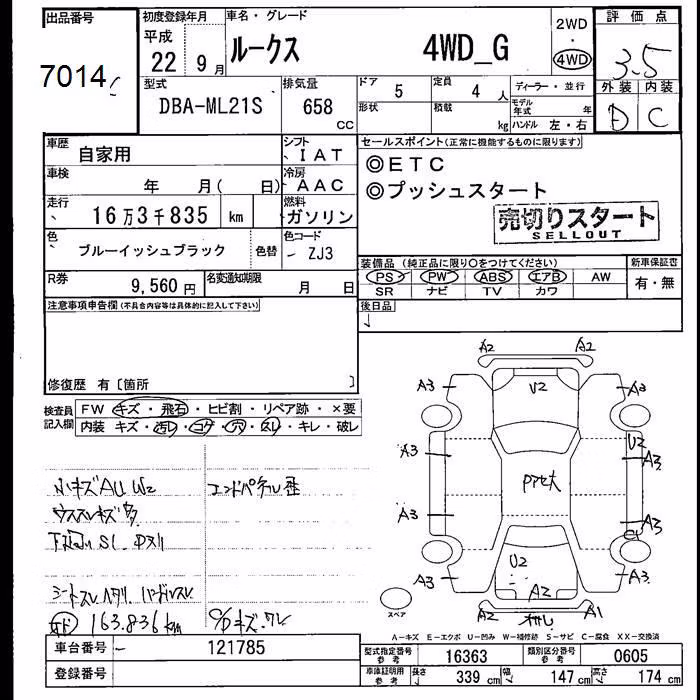 出品番号
7014
初度登録年月
平成
22年 9月
車名・グレード
ルークス 4WD_G
2WD
・
4WD
評価点
3.5
外装 内装
D C
型式
DBA-ML21S
排気量
658
CC
ドア 5
定員 4人
形状
積載 kg
ディーラー・並行
モデル年式 年
ハンドル 左・右
車歴
自家用
シフト
IAT
車検
年 月( 日)
冷房
AAC
走行
16万3千835 km
燃料
ガソリン
色
ブルーイッシュブラック
色替
色コード
ZJ3
セールスポイント(正常に機能するものに限ります)
◎ETC
◎プッシュスタート
売切りスタート
SELLOUT
装備品(純正品に限り○をつけてください)
PS PW ABS エアB AW
SR ナビ TV カワ
新車保証書
有・無
R券
9,560円
名変通知期限
月 日
後日品
注意事項申告欄(不具合内容等は具体的に記入して下さい)
修復歴 有〔箇所 〕
検査員記入欄
FW キズ・飛石・ヒビ割・リペア跡・×要
内装 キズ・汚レ・コゲ・穴・スレ・キレ・破レ
小キズAU W2
ウススレキズ多
下廻りSL
163.836km
A2 A2
A3 A3
U2
U2
A3 A3
A3 A3
A3 A3
U2
A2
A2 A1
スペア
A-キズ E-エクボ U-凹み W-補修跡 S-サビ C-腐食 XX-交換済
車台番号
121785
登録番号
型式指定番号
参考
16363
類別区分番号
参考
0605
車庫証明用
参考
長さ 339 cm 幅 147 cm 高さ 174 cm